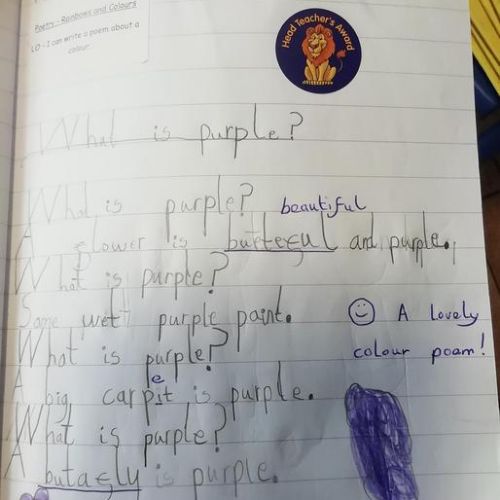 Poetry - Rainbows and Colours
LO - I can write a poem about a
colour.
Head Teacher's Award
What is purple?
What is purple? beautiful
A flower is buttecul and purple.
What is purple?
Some wet purple paint.
☺ A lovely
What is purple?
colour poam!
e
A big carpit is purple.
What is purple?
A butacly is purple.